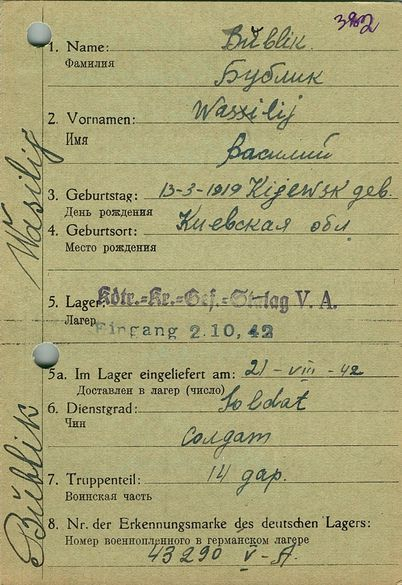 382
1. Name: Bŭblik.
Фамилия
Бублик
2. Vornamen: Wassilij
Имя
Василий
3. Geburtstag: 13-3-1919 Kijewsk geb.
День рождения
4. Geburtsort: Киевская обл
Место рождения
5. Lager: Kdtr.=Kr.=Gef.=Stalag V. A.
Лагерь
Eingang 2.10.42
5a. Im Lager eingeliefert am: 21-VIII-42
Доставлен в лагер (число)
6. Dienstgrad: Soldat
Чин
солдат
7. Truppenteil: 14 гар.
Воинская часть
8. Nr. der Erkennungsmarke des deutschen Lagers:
Номер военнопленного в германском лагере
43290 V-A.
Bŭblik Wasilij